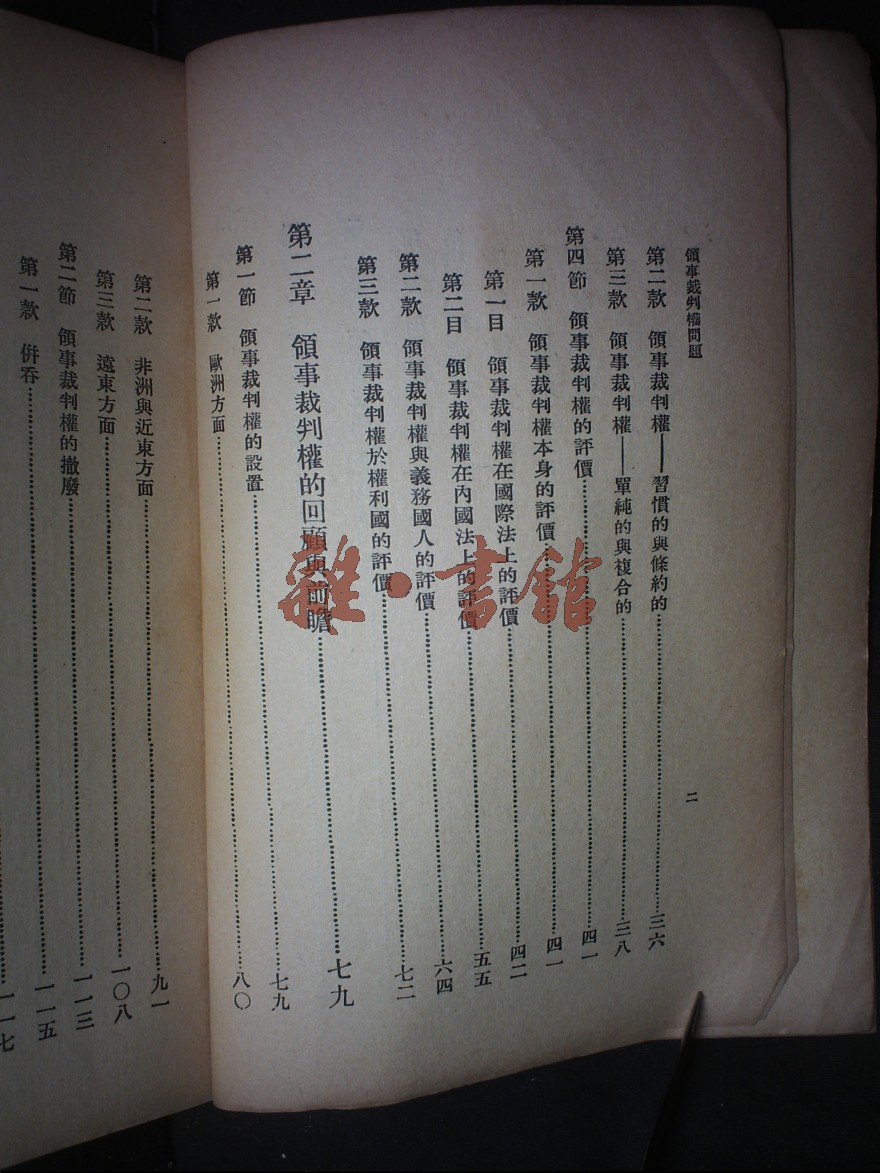 領事裁判權問題
二
第二款　領事裁判權——習慣的與條約的……三六
第三款　領事裁判權——單純的與複合的……三八
第四節　領事裁判權的評價……四一
第一款　領事裁判權本身的評價……四一
第一目　領事裁判權在國際法上的評價……四二
第二目　領事裁判權在內國法上的評價……五五
第二款　領事裁判權與義務國人的評價……六四
第三款　領事裁判權於權利國的評價……七二
第二章　領事裁判權的回顧與前瞻……七九
第一節　領事裁判權的設置……七九
第一款　歐洲方面……八〇
第二款　非洲與近東方面……九一
第三款　遠東方面……一〇八
第二節　領事裁判權的撤廢……一一三
第一款　併吞……一一五
……一一七
雜·書館